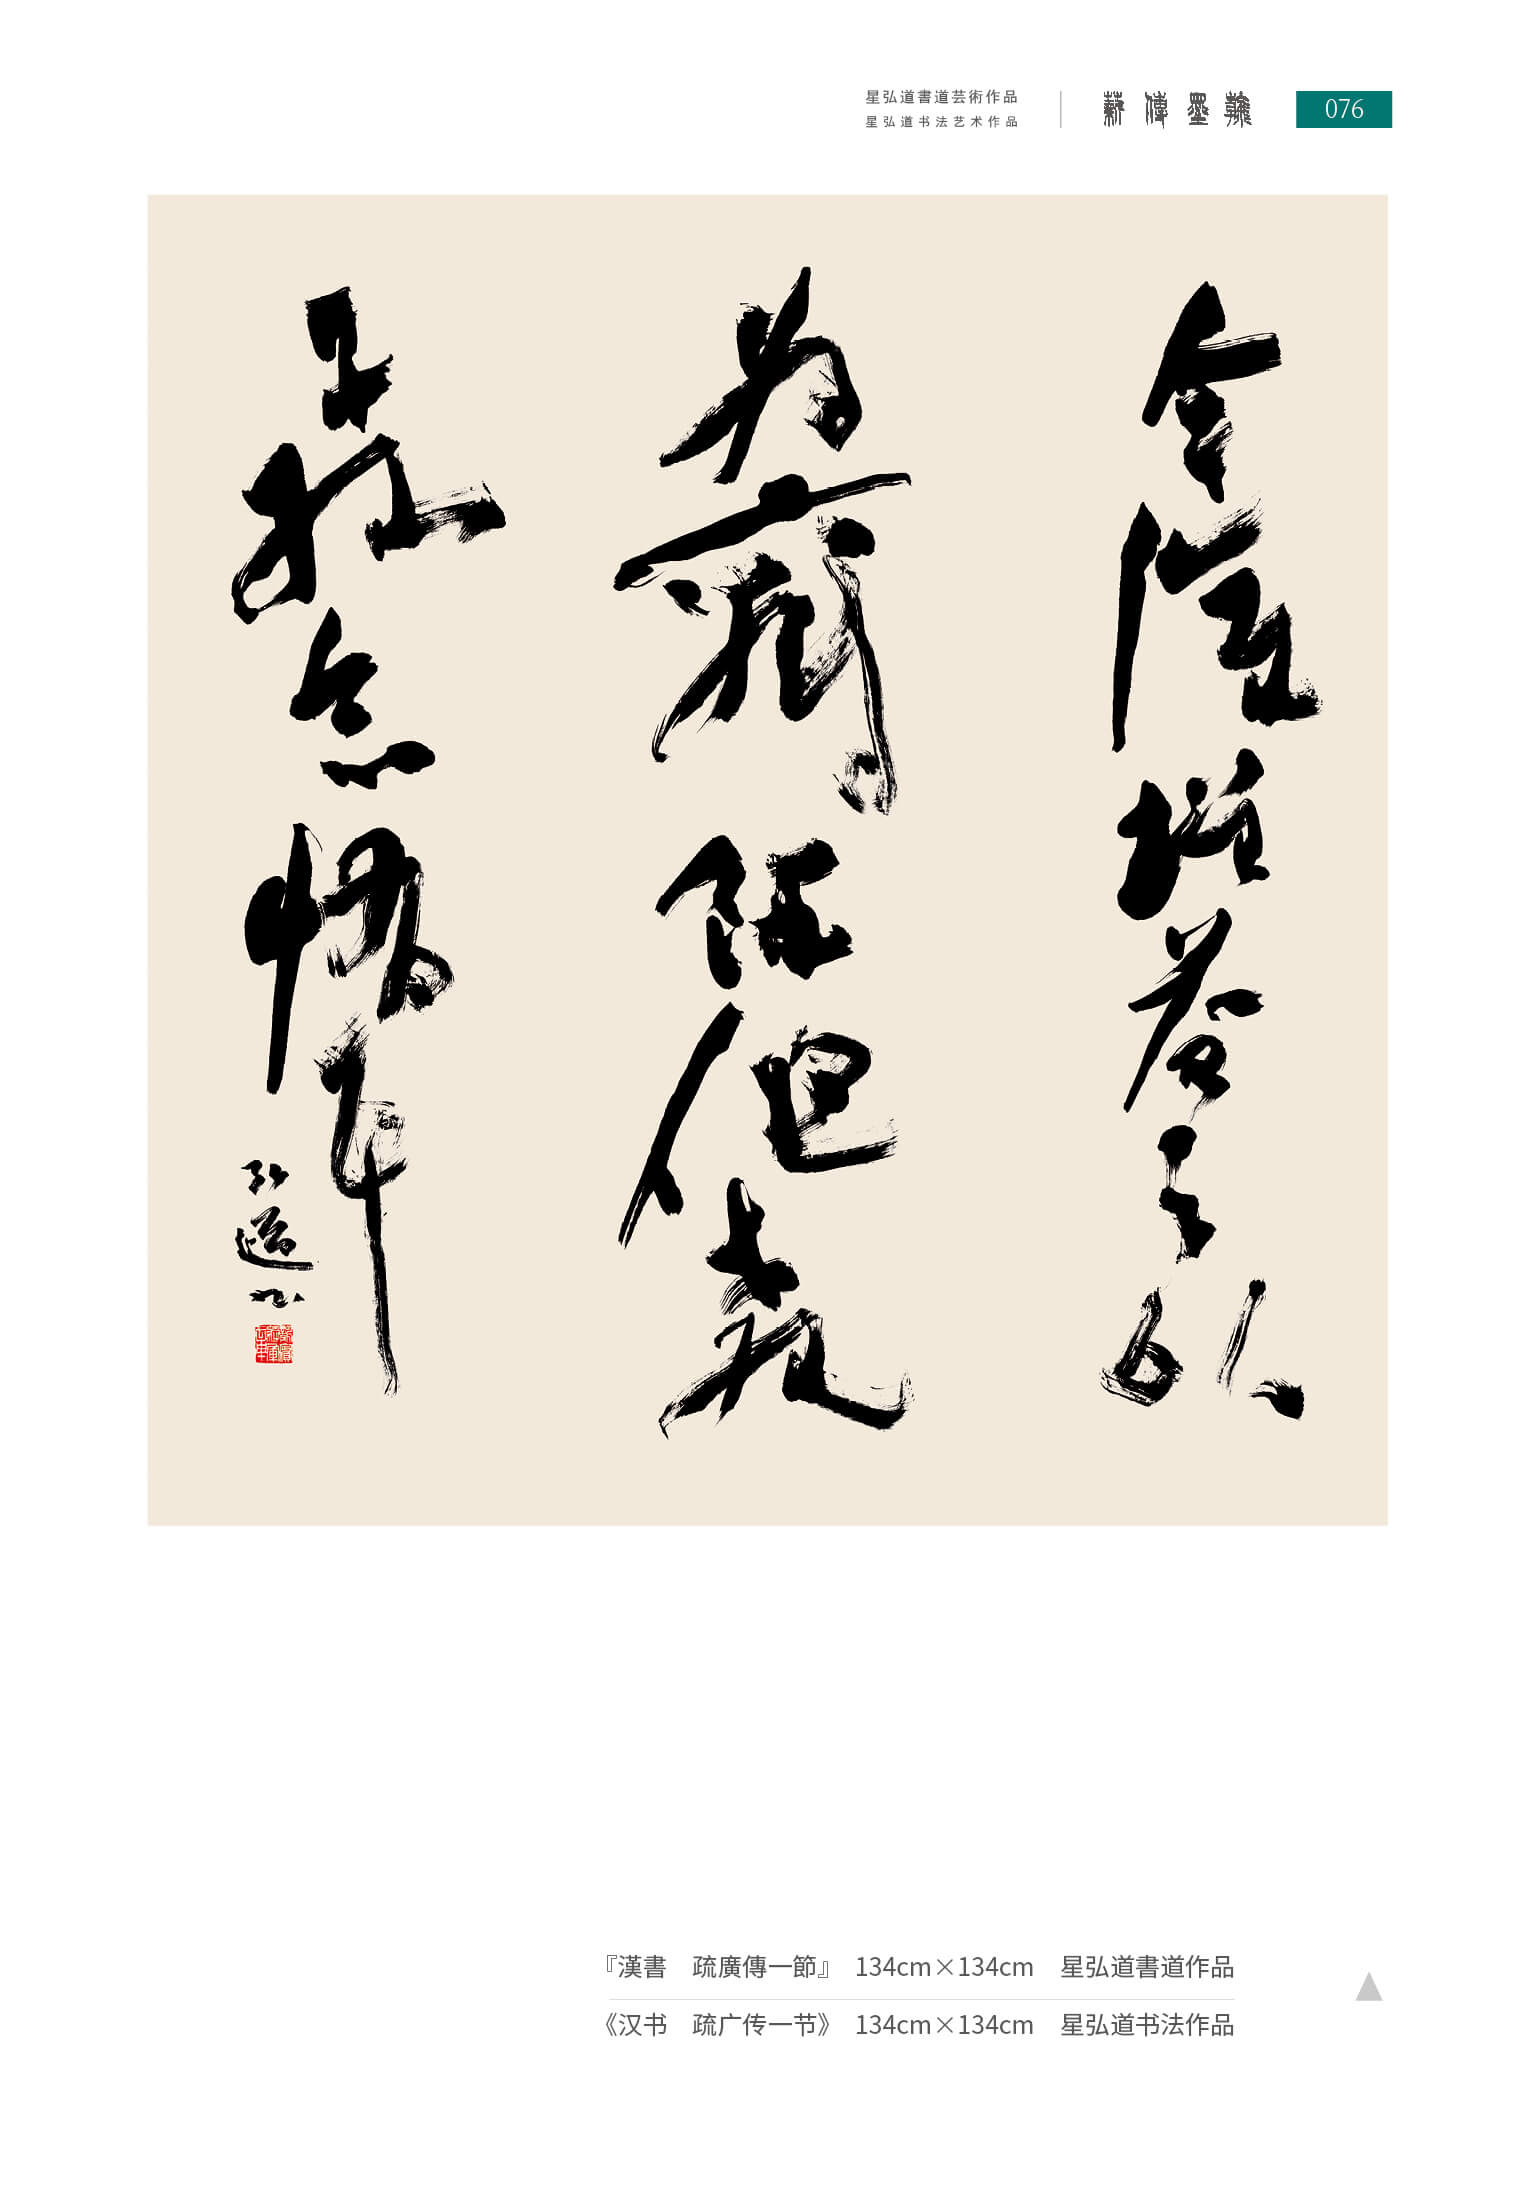 星弘道書道芸術作品
星弘道书法艺术作品
薪傳墨翰
076
今復增益之以
為贏餘但教
子孫怠惰耳
弘道
『漢書　疏廣傳一節』 134cm×134cm 星弘道書道作品
《汉书　疏广传一节》 134cm×134cm 星弘道书法作品